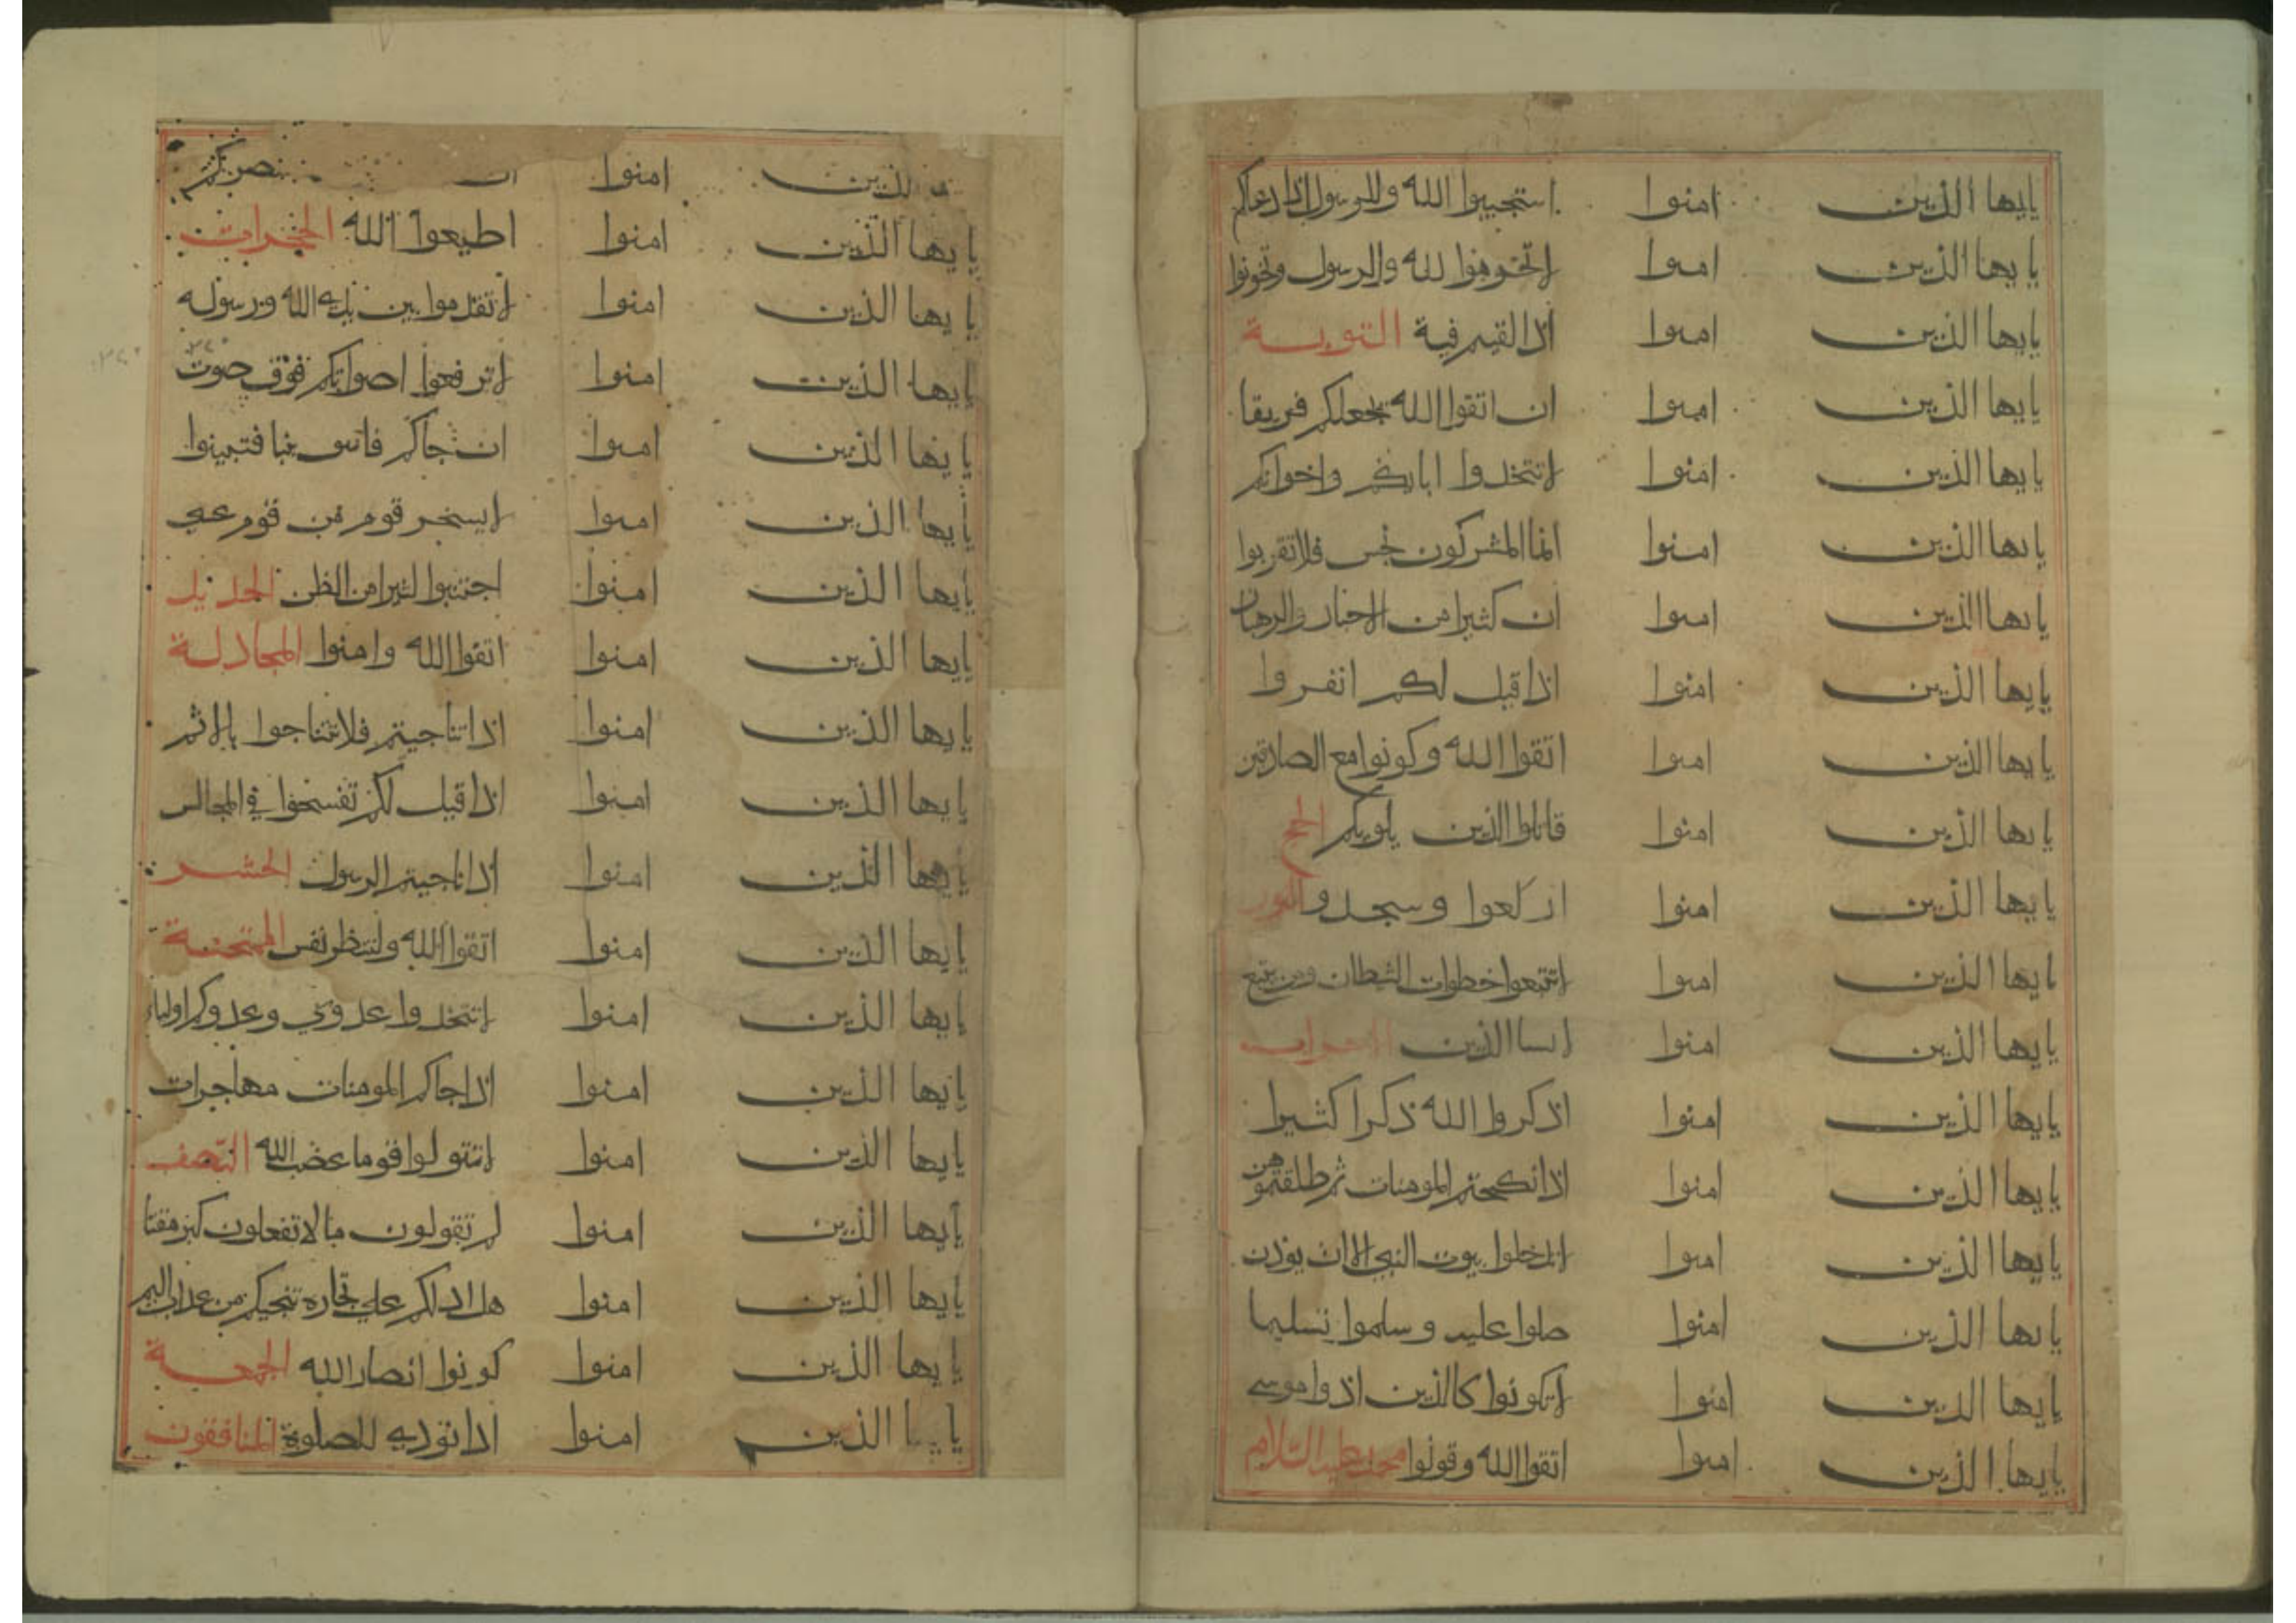 يايها الذين امنوا استجيبوا الله وللرسول اذا دعاكم
يايها الذين امنوا لاتخونوا لله والرسول وتخونوا
يايها الذين امنوا اذا لقيتم فية التوبة
يايها الذين امنوا ان اتقوا الله يجعلكم فريقا
يايها الذين امنوا لاتتخذوا اباءكم واخوانكم
يايها الذين امنوا انما المشركون نجس فلا تقربوا
يايها الذين امنوا ان كثيرا من الاحبار والرهبان
يايها الذين امنوا اذا قيل لكم انفروا
يايها الذين امنوا اتقوا الله وكونوا مع الصادقين
يايها الذين امنوا قاتلوا الذين يلونكم الحج
يايها الذين امنوا اركعوا وسجدوا النور
يايها الذين امنوا لاتتبعوا خطوات الشطان ومن يتبع
يايها الذين امنوا الذين
يايها الذين امنوا اذكروا الله ذكرا كثيرا
يايها الذين امنوا اذا نكحتم المومنات ثم طلقتموهن
يايها الذين امنوا لاتدخلوا بيوت النبي الا ان يوذن
يايها الذين امنوا صلوا عليه وسلموا تسليما
يايها الذين امنوا لاتكونوا كالذين اذوا موسى
يايها الذين امنوا اتقوا الله وقولوا محمد عليه السلام
الذين امنوا ان تنصر
يايها الذين امنوا اطيعوا الله الحجرات
يايها الذين امنوا لاتقدموا بين يدي الله ورسوله
يايها الذين امنوا لاترفعوا اصواتكم فوق صوت
يايها الذين امنوا ان جاكم فاسق بنبا فتبينوا
يايها الذين امنوا لايسخر قوم من قوم عسى
يايها الذين امنوا اجتنبوا كثيرا من الظن الحديد
يايها الذين امنوا اتقوا الله وامنوا المجادلة
يايها الذين امنوا اذا تناجيتم فلا تتناجوا بالاثم
يايها الذين امنوا اذا قيل لكم تفسحوا في المجالس
يايها الذين امنوا اذا ناجيتم الرسول الحشر
يايها الذين امنوا اتقوا الله ولتنظر نفس الممتحنة
يايها الذين امنوا لاتتخذوا عدوي وعدوكم اولياء
يايها الذين امنوا اذا جاكم المومنات مهاجرات
يايها الذين امنوا لاتتولوا قوما غضب الله الصف
يايها الذين امنوا لم تقولون ما لا تفعلون كبر مقتا
يايها الذين امنوا هل ادلكم على تجارة تنجيكم من عذاب اليم
يايها الذين امنوا كونوا انصار الله الجمعة
يايها الذين امنوا اذا نودي للصلوة المنافقون